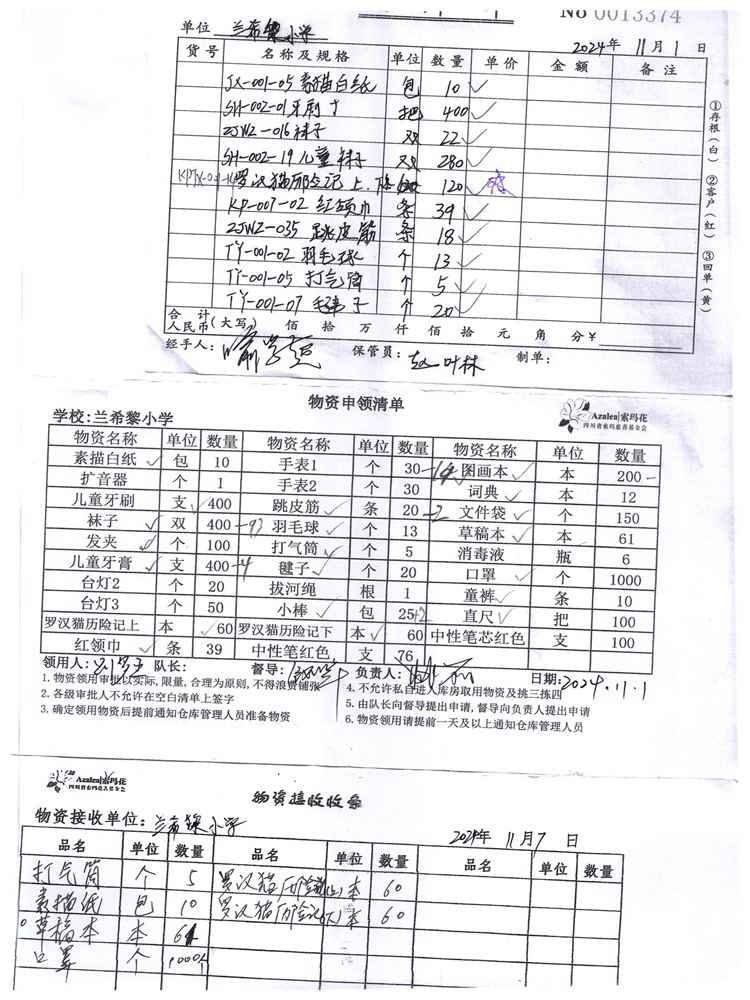 No 0013374
单位 兰希黎小学
2024年 11月 1日
货号 名称及规格 单位 数量 单价 金额 备注
JX-001-05 素描白纸 包 10
SH-002-01 牙刷 把 400
ZJWZ-016 袜子 双 22
SH-002-19 儿童袜子 双 280
罗汉猫历险记上.下 120
KP-007-02 红领巾 条 39
ZJWZ-035 跳皮筋 条 18
TY-001-02 羽毛球 个 13
TY-001-05 打气筒 个 5
TY-001-07 毽子 个 20
合计
人民币(大写) 佰 拾 万 仟 佰 拾 元 角 分¥
经手人: 保管员: 叶林 制单:
①存根(白) ②客户(红) ③回单(黄)
物资申领清单
Azalea|索玛花
四川省索玛慈善基金会
学校:兰希黎小学
物资名称 单位 数量 物资名称 单位 数量 物资名称 单位 数量
素描白纸 包 10 手表1 个 30 图画本 本 200
扩音器 个 1 手表2 个 30 词典 本 12
儿童牙刷 支 400 跳皮筋 条 20-2 文件袋 个 150
袜子 双 400 羽毛球 个 13 草稿本 本 61
发夹 个 100 打气筒 个 5 消毒液 瓶 6
儿童牙膏 支 400-4 毽子 个 20 口罩 个 1000
台灯2 个 20 拔河绳 根 1 童裤 条 10
台灯3 个 50 小棒 包 25+2 直尺 把 100
罗汉猫历险记上 本 60 罗汉猫历险记下 本 60 中性笔芯红色 支 100
红领巾 条 39 中性笔红色 支 76
领用人: 队长: 督导: 负责人: 日期:2024.11.1
1. 物资领用审批以实际, 限量, 合理为原则, 不得浪费铺张
4. 不允许私自进入库房取用物资及挑三拣四
2. 各级审批人不允许在空白清单上签字
5. 由队长向督导提出申请, 督导向负责人提出申请
3. 确定领用物资后提前通知仓库管理人员准备物资
6. 物资领用请提前一天及以上通知仓库管理人员
Azalea|索玛花
四川省索玛慈善基金会
物资接收收条
物资接收单位: 兰希黎小学
2024年 11月 7日
品名 单位 数量 品名 单位 数量 品名 单位 数量
打气筒 个 5 罗汉猫历险记(上) 本 60
素描纸 包 10 罗汉猫历险记(下) 本 60
草稿本 本 61
口罩 个 1000个